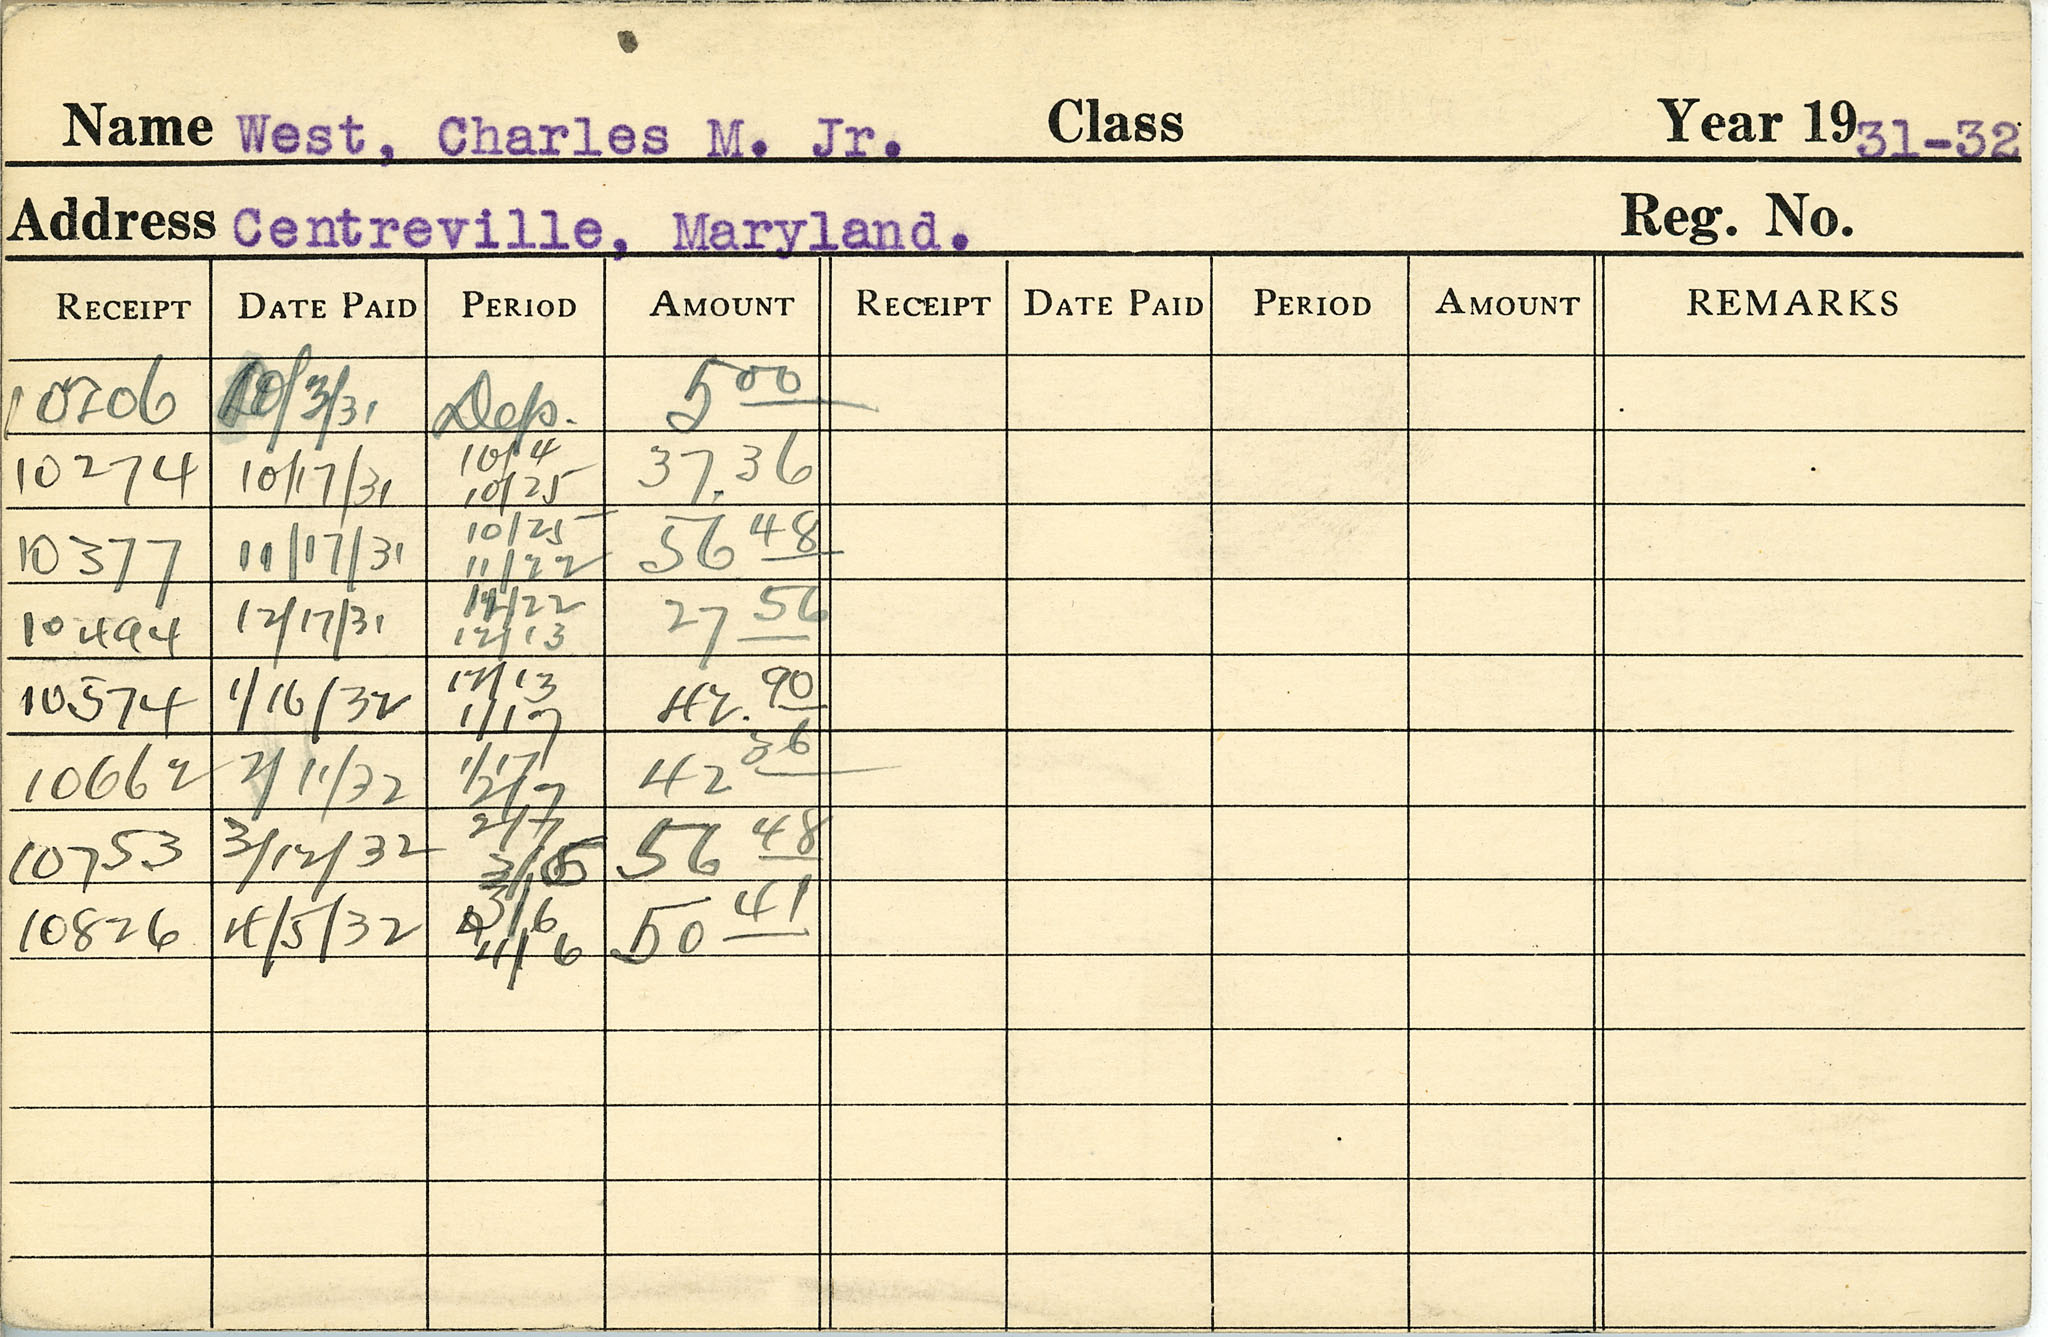 Name West, Charles M. Jr. Class Year 1931-32
Address Centreville, Maryland. Reg. No.
RECEIPT DATE PAID PERIOD AMOUNT RECEIPT DATE PAID PERIOD AMOUNT REMARKS
10206 10/3/31 Dep. 5 00
10274 10/17/31 10/4 10/25 37.36
10377 11/17/31 10/25 11/22 56 48
10494 12/17/31 11/22 12/13 27 56
10574 1/16/32 12/13 1/17 42.90
10662 2/11/32 1/17 2/7 42 36
10753 3/12/32 2/7 3/5 56 48
10826 4/5/32 3/6 4/6 50 41